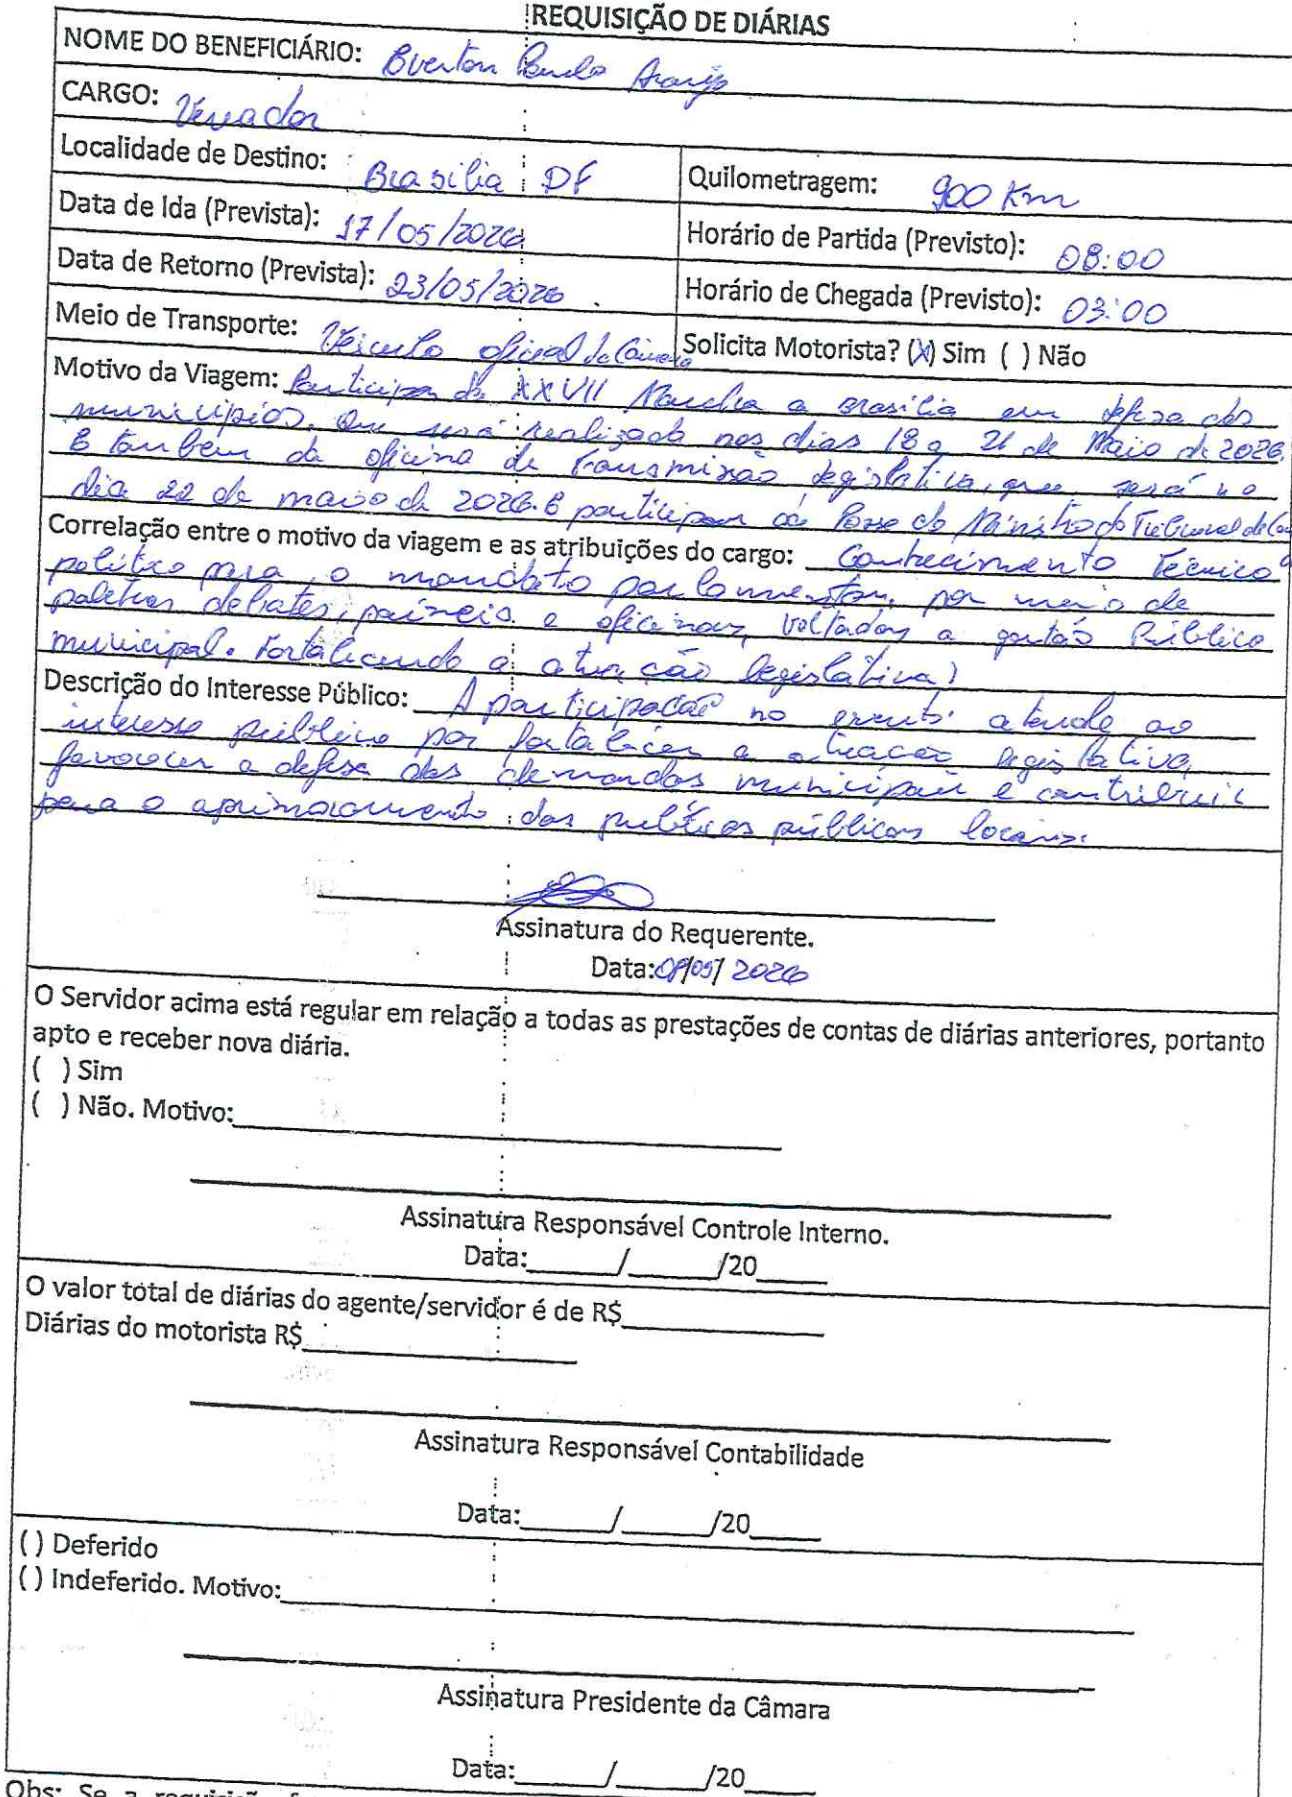 REQUISIÇÃO DE DIÁRIAS
NOME DO BENEFICIÁRIO: Everton Paulo Araújo
CARGO: Vereador
Localidade de Destino: Brasília DF
Quilometragem: 900 Km
Data de Ida (Prevista): 17/05/2026
Horário de Partida (Previsto): 08:00
Data de Retorno (Prevista): 23/05/2026
Horário de Chegada (Previsto): 03:00
Meio de Transporte: Veiculo oficial da Câmara
Solicita Motorista? (X) Sim ( ) Não
Motivo da Viagem: Participar da XXVII Marcha a Brasília em defesa dos
municípios. Que será realizada nos dias 18 a 21 de Maio de 2026.
E também da oficina de Transmissão Legislativa, que será no
dia 22 de maio de 2026. E participar da Posse do Ministro do Tribunal de
Correlação entre o motivo da viagem e as atribuições do cargo: Conhecimento Técnico
político para o mandato parlamentar, por meio de
paletras debates, paineis e oficinas, voltadas a gestão Pública
municipal. Fortalecendo a atuação legislativa)
Descrição do Interesse Público: A participação no evento atende ao
interesse público por fortalecer a atuação legislativa,
favorecer a defesa das demandas municipais e contribuir
para o aprimoramento das públicas locais.
Assinatura do Requerente.
Data: /05/2026
O Servidor acima está regular em relação a todas as prestações de contas de diárias anteriores, portanto
apto e receber nova diária.
( ) Sim
( ) Não. Motivo:
Assinatura Responsável Controle Interno.
Data:______/______/20_____
O valor total de diárias do agente/servidor é de R$
Diárias do motorista R$
Assinatura Responsável Contabilidade
Data:______/______/20_____
( ) Deferido
( ) Indeferido. Motivo:
Assinatura Presidente da Câmara
Data:______/______/20_____
Obs: Se a requisição